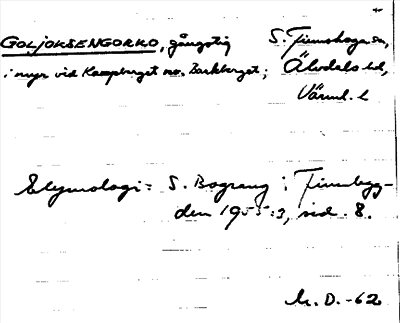 GOLJOKSENGORKO, gångstig S. Finnskoga sn,
i myr vid Kampberget no. Barkberget; Älvdals hd,
Värml. l
Etymologi: S. Bograng i Finnbyg-
den 1955:3, sid. 8.
M. D. -62